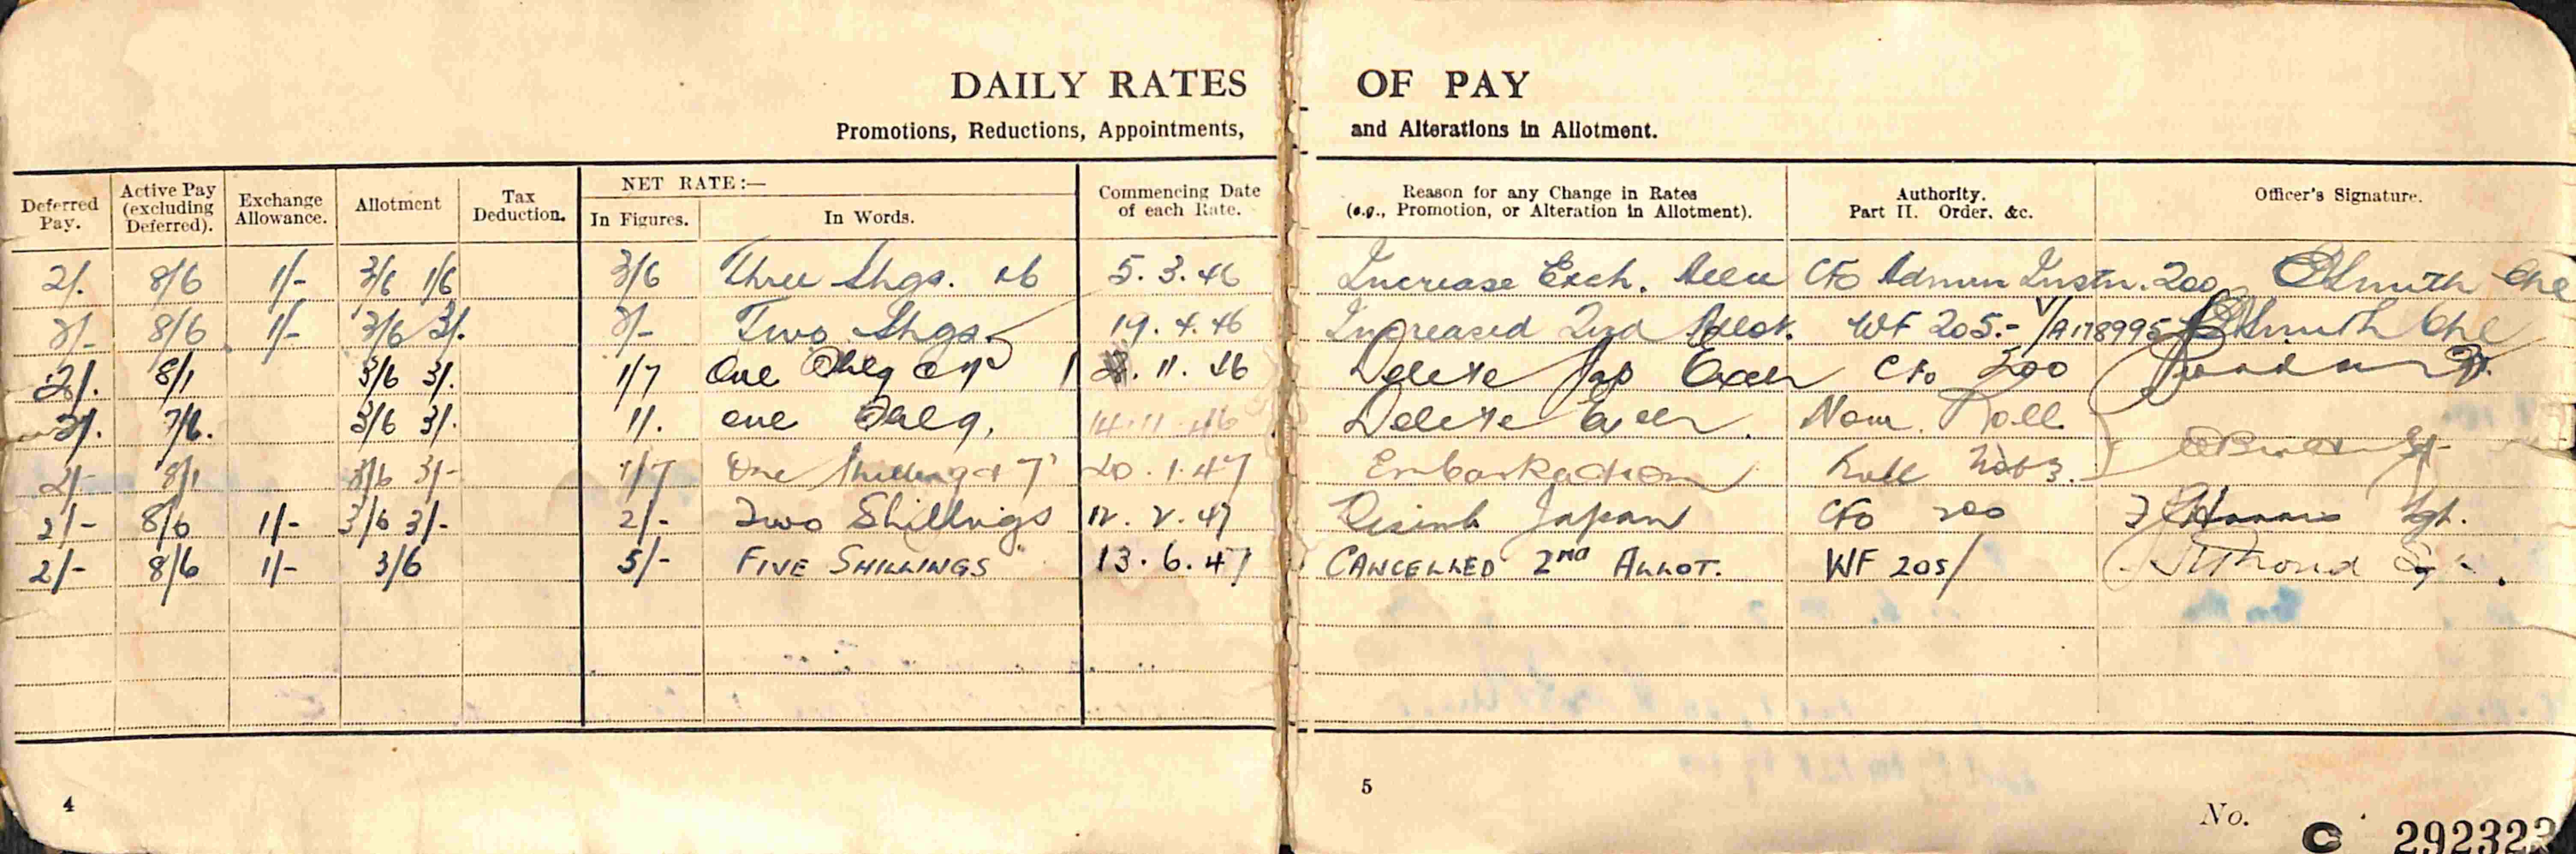 DAILY RATES OF PAY
Promotions, Reductions, Appointments, and Alterations in Allotment.
Deferred Pay. Active Pay (excluding Deferred). Exchange Allowance. Allotment Tax Deduction. NET RATE:— In Figures. In Words. Commencing Date of each Rate. Reason for any Change in Rates (e.g., Promotion, or Alteration in Allotment). Authority. Part II. Order. &c. Officer's Signature.
2/. 8/6 1/- 3/6 1/6 3/6 Three Shgs. &6 5.3.46 Increase Exch. CFO Admin Instn. 200 Smith
2/- 8/6 1/- 3/6 3/. 2/- Two Shgs. 19.4.46 Increased 2nd Allot. WF 205.- V/A178995 Smith
2/. 8/1 3/6 3/. 1/7 One Shlg 11.46 Delete Jap CFO 200
2/. 7/6. 3/6 3/. 1/. One Shlg. 14.11.46 Delete Nom. Roll
2/- 8/1 3/6 3/- 1/7 One Shilling & 7 20.1.47 Embarkation Roll
2/- 8/6 1/- 3/6 3/- 2/- Two Shillings 12.2.47 Disemb Japan CFO 200 Sgt.
2/- 8/6 1/- 3/6 5/- FIVE SHILLINGS 13.6.47 CANCELLED 2ND ALLOT. WF 205/
4
5
No. C 292323